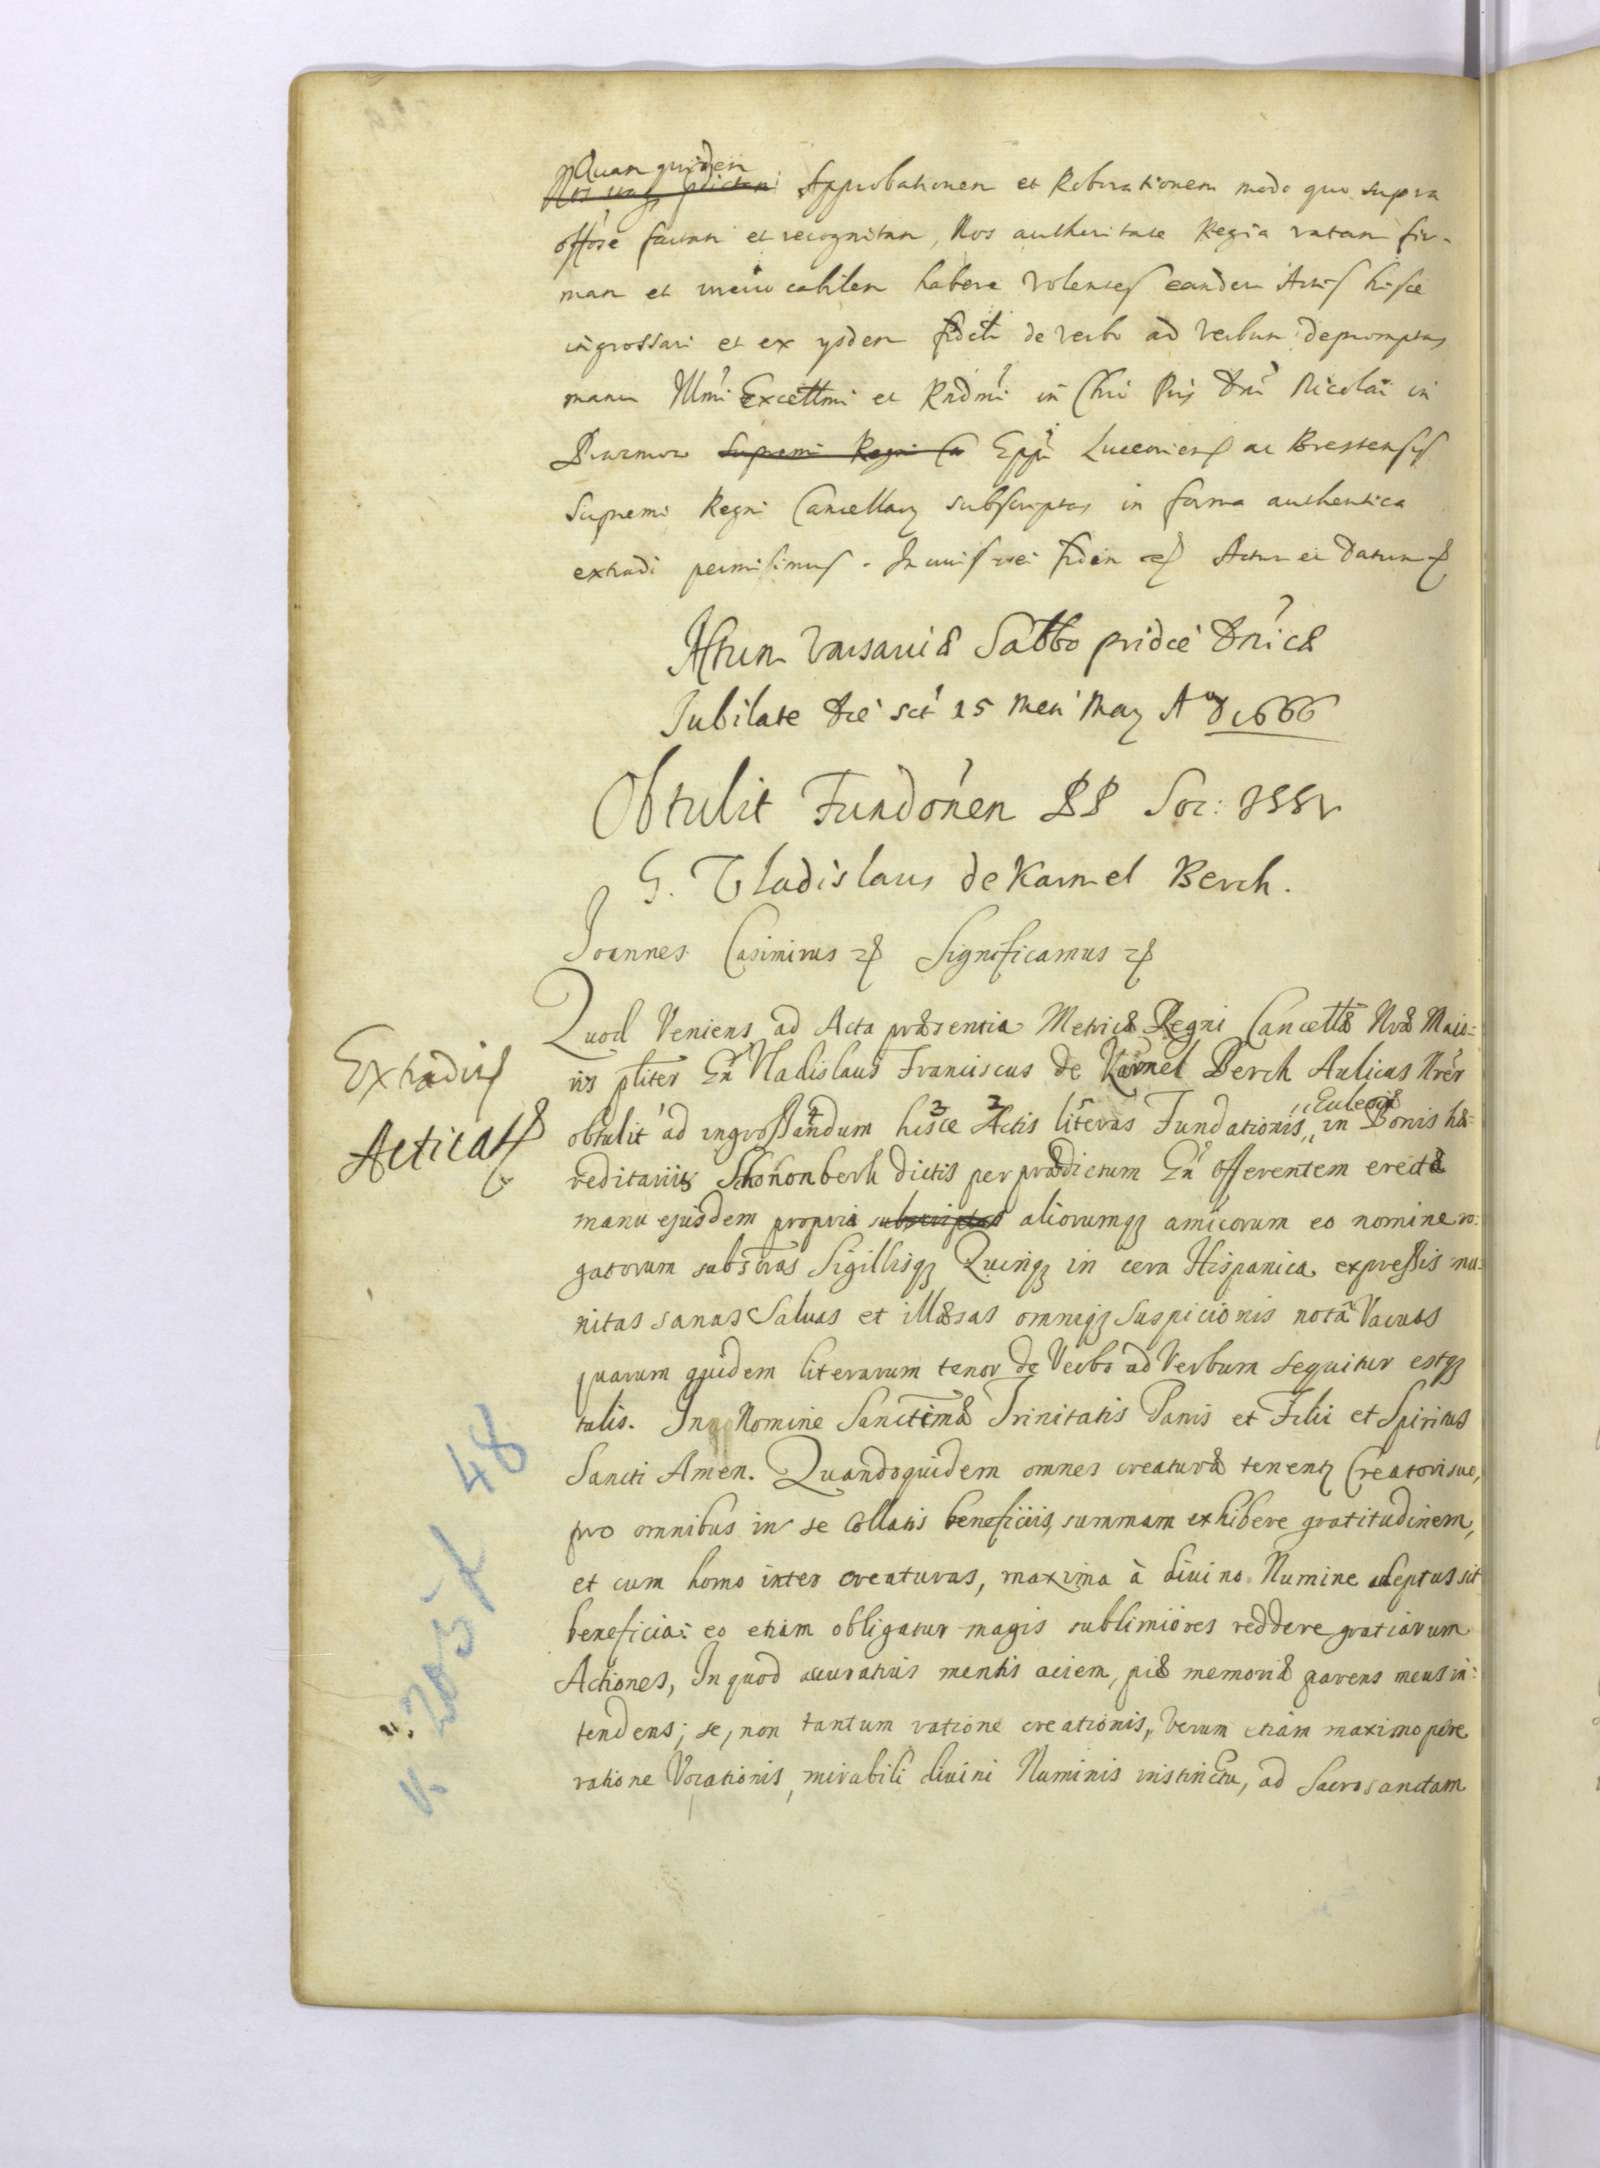 Quam quidem
Approbationem et Roborationem modo quo supra
offôse factam et recognitam, Nos autheritate Regia ratam fir-
mam et irreuocabilem habere Volentes eandem Actis hisce
ingrossari et ex ysdem de verbo ad verbum depromptas
manu Illmi Excellmi et Rndmi in Chro Pris Dni Nicolai in
Prazmow Supremi Regni Ca Eppi Luceorien ac Brestensis
Supremi Regni Cancellarij subscriptas in forma authentica
extradi permisimus. In cuius rei fidem Actum et Datum
Actum Varsauiæ Sabbo pridie Dnicæ
Jubilate die sct 15 Men May Ao D 1666
Obtulit Fundonem PP Soc: JESV
G. Vladislaus de Karnel Berch.
Joannes Casimirus Significamus
Quod Veniens ad Acta præsentia Metricæ Regni Cancellæ Nræ Maio-
ris pliter Gn Vladislaus Franciscus de Karnel Berch Aulicus Nrer
Extradit
Ecclesiæ
obtulit ad ingrossandum hisce Actis literas Fundationis in Bonis hæ-
Acticat
reditariis Schononberk dictis per prædictum Gn offerentem erectæ
manu ejusdem propria subscriptas aliorumq amicorum eo nomine ro-
gatorum substras Sigillisq Quinq in cera Hispanica expressis mu-
nitas sanas Saluas et illæsas omniq suspicionis nota Vacuas
quarum quidem literarum tenor de Verbo ad Verbum sequitur estq
talis. In Nomine Sanctimæ Trinitatis Patris et Filii et Spiritus
Sancti Amen. Quandoquidem omnes creaturæ tenent Creatori suo,
pro omnibus in se collatis beneficiis, summam exhibere gratitudinem,
et cum homo inter creaturas, maxima à diuino Numine adeptus sit
beneficia: eo etiam obligatur magis sublimiores reddere gratiarum
Actiones, In quod accuratius mentis aciem, piæ memoriæ parens meus in-
tendens; se, non tantum ratione creationis, verum etiam maximopere
ratione Vocationis, mirabili diuini Numinis instinctu, ad Sacrosanctam
48